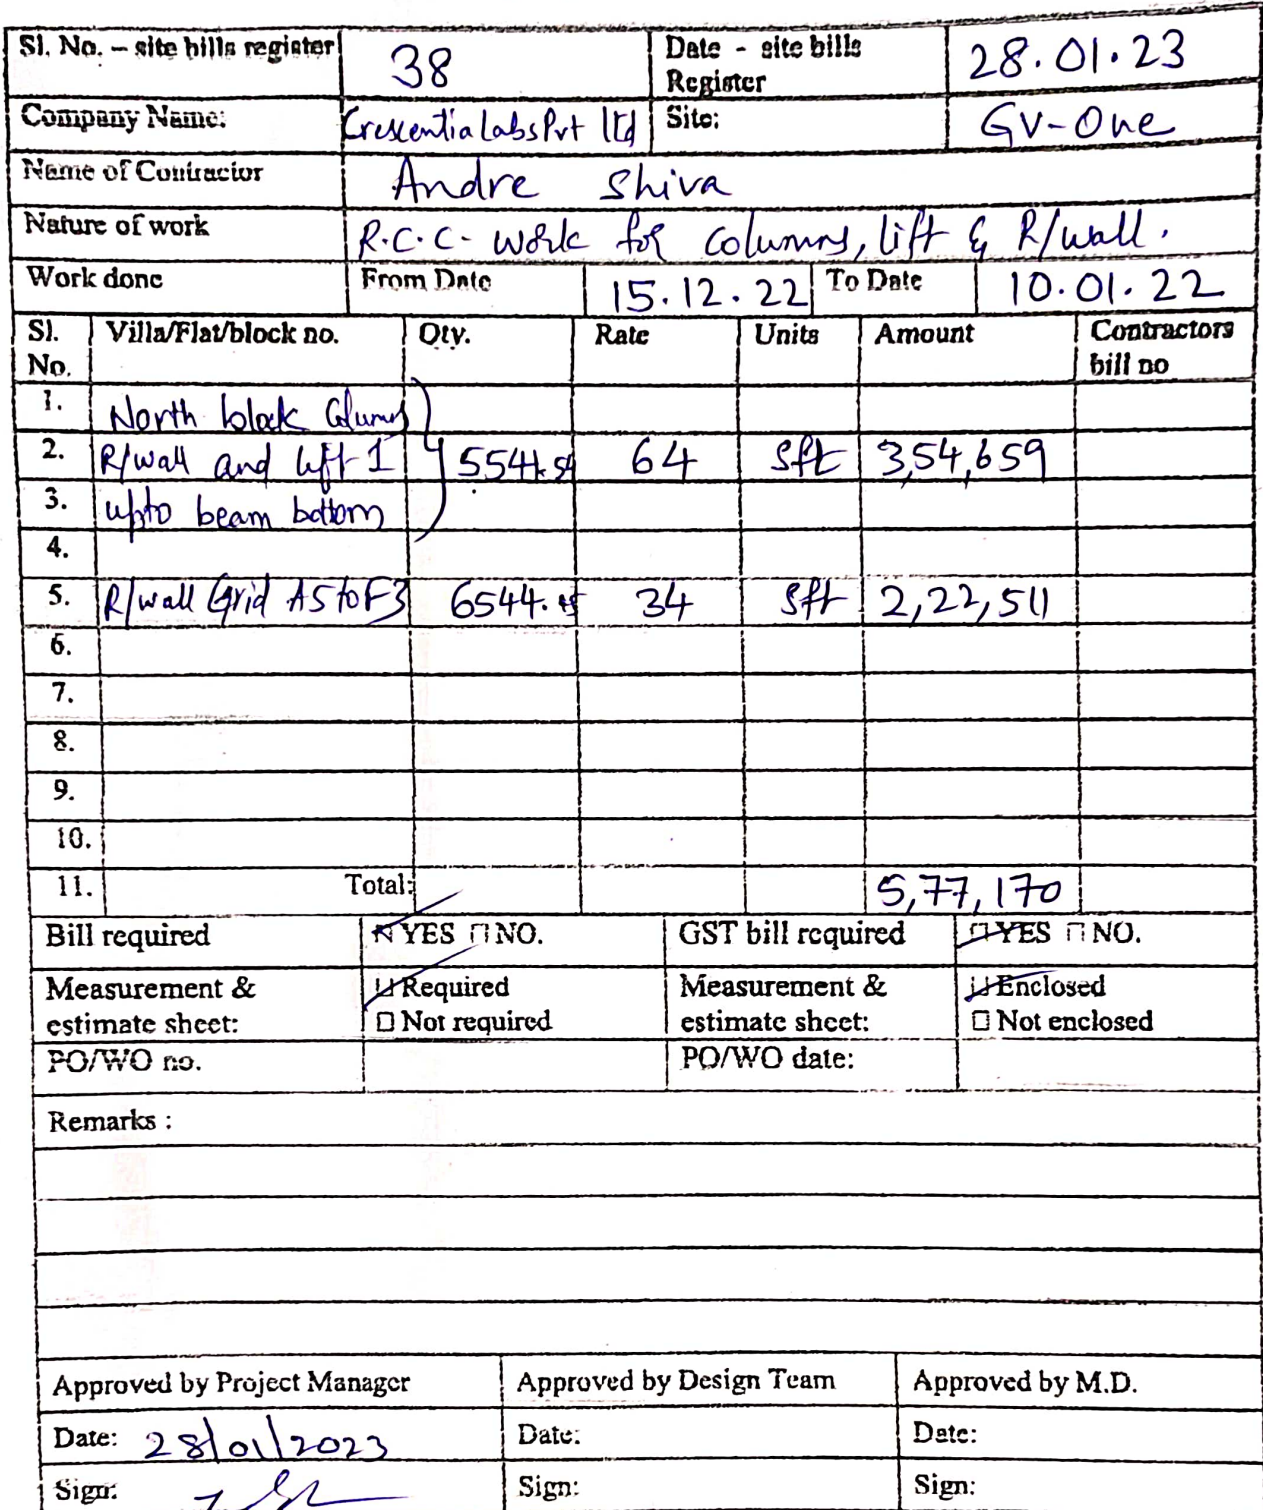 Sl. No. – site bills register 38 Date - site bills Register 28.01.23
Company Name: Crescentia Labs Pvt ltd Site: GV-One
Name of Contractor Andre Shiva
Nature of work R.C.C. work for columns, lift & R/wall.
Work done From Date 15.12.22 To Date 10.01.22
Sl. No. Villa/Flat/block no. Qty. Rate Units Amount Contractors bill no
1. North block Columns
2. R/wall and lift 1 5541.54 64 sft 3,54,659
3. upto beam bottom
4.
5. R/wall Grid A5 to F3 6544. 34 sft 2,22,511
6.
7.
8.
9.
10.
11. Total: 5,77,170
Bill required YES NO. GST bill required YES NO.
Measurement & estimate sheet: Required Measurement & estimate sheet: Enclosed
Not required Not enclosed
PO/WO no. PO/WO date:
Remarks :
Approved by Project Manager Approved by Design Team Approved by M.D.
Date: 28/01/2023 Date: Date:
Sign: Sign: Sign: